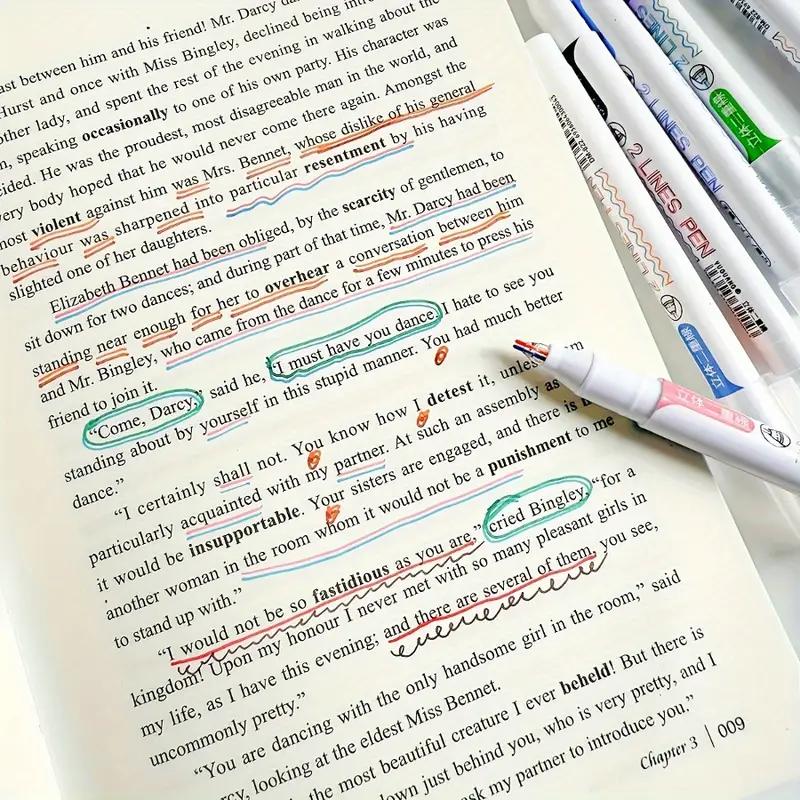 between him and his friend! Mr. Darcy
Hurst and once with Miss Bingley, declined being
other lady, and spent the rest of the evening in walking about the
speaking occasionally to one of his own party. His character was
He was the proudest, most disagreeable man in the world, and
very body hoped that he would never come there again. Amongst the
most violent against him was Mrs. Bennet, whose dislike of his general
behaviour was sharpened into particular resentment by his having
slighted one of her daughters.
Elizabeth Bennet had been obliged, by the scarcity of gentlemen, to
sit down for two dances; and during part of that time, Mr. Darcy had been
standing near enough for her to overhear a conversation between him
and Mr. Bingley, who came from the dance for a few minutes to press his
friend to join it.
“Come, Darcy,” said he, “I must have you dance. I hate to see you
standing about by yourself in this stupid manner. You had much better
dance.”
“I certainly shall not. You know how I detest it, unless
particularly acquainted with my partner. At such an assembly as
it would be insupportable. Your sisters are engaged, and there is
another woman in the room whom it would not be a punishment to me
to stand up with.”
“I would not be so fastidious as you are,” cried Bingley, “for a
kingdom! Upon my honour I never met with so many pleasant girls in
my life, as I have this evening; and there are several of them, you see,
uncommonly pretty.”
“You are dancing with the only handsome girl in the room,” said
looking at the eldest Miss Bennet.
the most beautiful creature I ever beheld! But there is
down just behind you, who is very pretty, and I
ask my partner to introduce you.”
Chapter 3 | 009
2 LINES PEN
2 LINES PEN
2 LINES
立体二重線
立体二重線